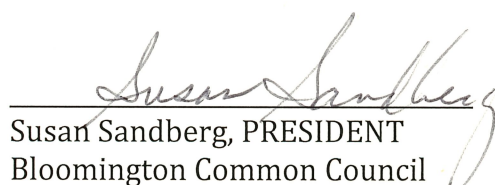 Susan Sandberg
Susan Sandberg, PRESIDENT
Bloomington Common Council